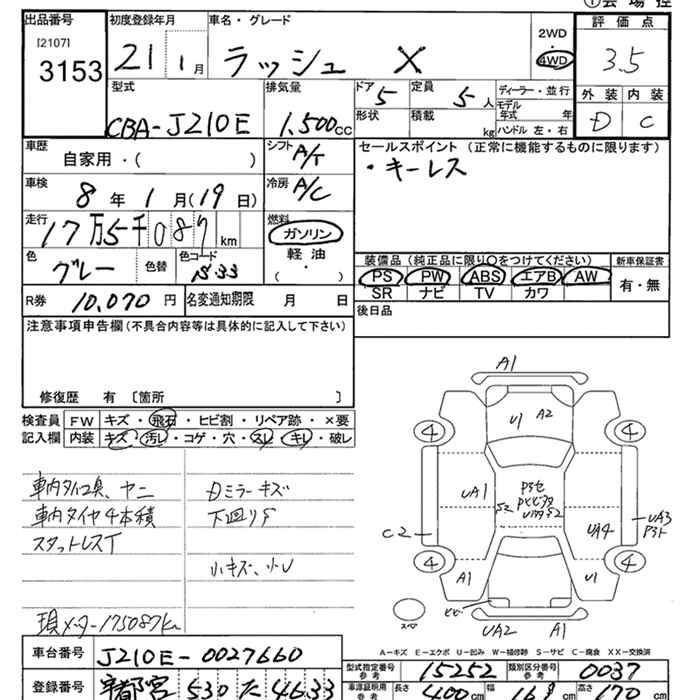 ①会場控
出品番号 初度登録年月 車名・グレード 2WD 評価点
[2107] 3153 21 1月 ラッシュ X 4WD 3.5
型式 排気量 ドア 5 定員 5人 ディーラー・並行 外装 内装
CBA-J210E 1,500cc 形状 積載 kg モデル年式 年 D C
ハンドル 左・右
車歴 自家用・( ) シフト A/T セールスポイント (正常に機能するものに限ります)
・キーレス
車検 8年1月(19日) 冷房 A/C
走行 17万5千087km 燃料 ガソリン
軽油
・( )
色 グレー 色替 色コード S33
装備品 (純正品に限り○をつけてください) 新車保証書
PS PW ABS エアB AW 有・無
SR ナビ TV カワ
R券 10,070円 名変通知期限 月 日
後日品
注意事項申告欄(不具合内容等は具体的に記入して下さい)
修復歴 有 〔箇所 〕
検査員 FW キズ・飛石・ヒビ割・リペア跡・×要
記入欄 内装 キズ・汚レ・コゲ・穴・スレ・キレ・破レ
車内タバコ臭、ヤニ Dミラーキズ
車内タイヤ4本積 下廻りS
スタットレスT
小キズ、小U
現メーター175087km
A1
U1 A2
4 4
UA1
S2
C2
UA4
UA3
4 4
A1 U1
スペア
ヒビ
UA2 A1
A−キズ E−エクボ U−凹み W−補修跡 S−サビ C−腐食 XX−交換済
車台番号 J210E-0027660
型式指定番号 参考 15252 類別区分番号 参考 0037
登録番号 宇都宮 530 た 4633
車庫証明用 参考 長さ 400cm 幅 169 高さ 170